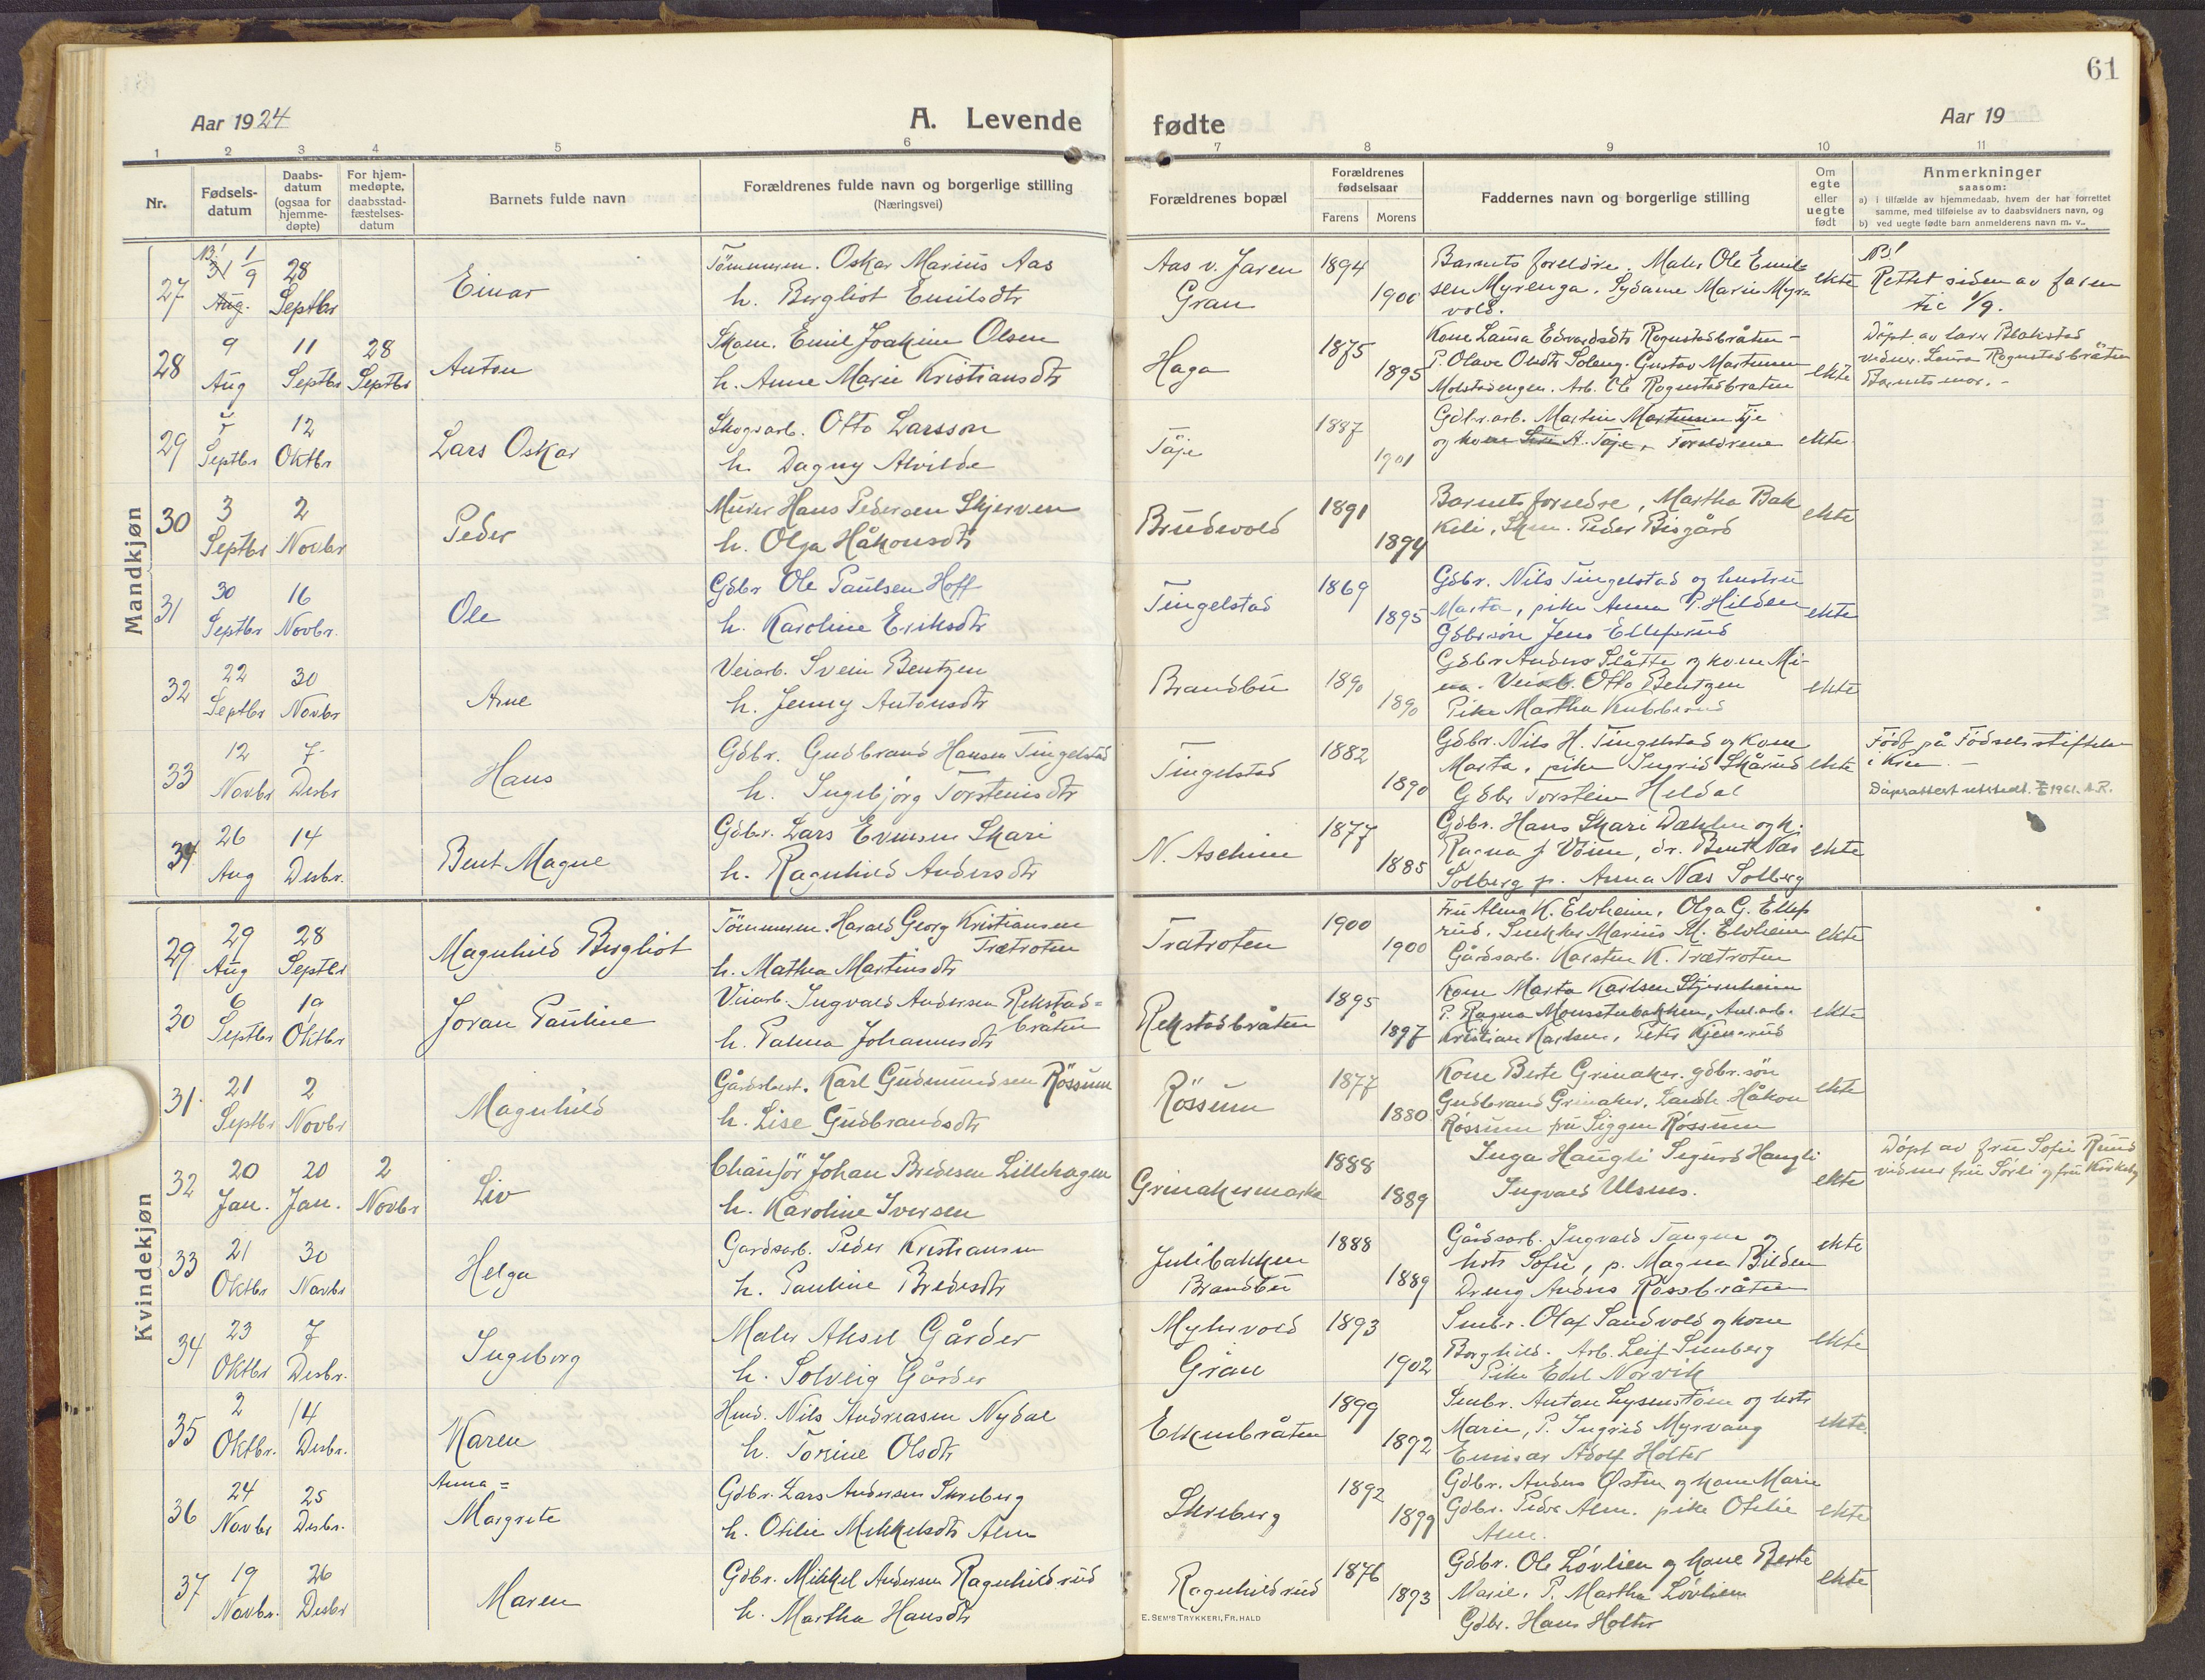 61
Aar 1924
A. Levende
fødte
Aar 19
1 2 3 4 5 6 7 8 9 10 11
Nr.
Fødsels-
datum
Daabs-
datum
(ogsaa for
hjemme-
døpte)
For hjem-
medøpte,
daabsstad-
fæstelses-
datum
Barnets fulde navn
Forældrenes fulde navn og borgerlige stilling
(Næringsvei)
Forældrenes bopæl
Forældrenes
fødselsaar
Farens Morens
Faddernes navn og borgerlige stilling
Om
egte
eller
uegte
født
Anmerkninger
saasom:
a) i tilfælde av hjemmedaab, hvem der har forrettet
samme, med tilføielse av to daabsvidners navn, og
b) ved uegte fødte barn anmelderens navn m. v.
Mandkjøn
27 NB! 31 Aug. 1/9 28 Septbr Einar
Tømmerm. Oskar Marius Aas
h. Bergliot Emilsdtr
Aas v. Jaren
Gran
1894 1900
Barnets foreldre, Maler Ole Emil-
sen Myrenga, Sydame Marie Myr-
vold.
ekte
NB!
Rettet siden av faren
til 1/9.
28 9 Aug 11 Septbr 28 Septbr Anton
Skom. Emil Joakim Olsen
h. Anne Marie Kristiansdtr
Haga
1875 1895
Kone Laura Edvardsdtr Rognstadbråten -
P. Olave Olsdtr Soleng. Gustav Martinsen
Molstadengen. Arb. Ole Rognstadbråten
ekte
Døpt av Lars Blakstad
vidner. Laura Rognstadbråten
Barnets mor. -
29 Septbr 12 Oktbr Lars Oskar
Skogsarb. Otto Larsson
h. Dagny Alvilde
Tøje
1887 1901
Gdbr.arb. Martin Martinsen
og kone A. Tøje, Foreldrene
ekte
30 3 Septbr 2 Novbr Peder
Murer Hans Pedersen Skjerven
h. Olga Håkonsdtr
Brudevold
1891 1894
Barnets foreldre, Martha Bak
keli, Skm. Peder Bisgård
ekte
31 30 Septbr 16 Novbr. Ole
Gdbr Ole Paulsen Hoff
h. Karoline Eriksdtr
Tingelstad
1869 1895
Gdbr. Nils Tingelstad og hustru
Marta, pike Anna P. Hilden
Gdbrsøn Jens Ellefsrud
ekte
32 22 Septbr 30 Novbr Arne
Veiarb. Svein Bentzen
h. Jenny Antonsdtr
Brandbu
1890 1890
Gdbr Anders Slåtte og kone Mi-
na. Veiarb. Otto Bentzen
Pike Martha Kubberud
ekte
33 12 Novbr 7 Desbr Hans
Gdbr. Gudbrand Hansen Tingelstad
h. Ingebjørg Torsteinsdtr
Tingelstad
1882 1890
Gdbr. Nils H. Tingelstad og kone
Marta, pike Ingrid Skårud
Gdbr Torstein Heldal
ekte
Født på Fødselsstiftelsen
i Kra. -
Dåpsattest utstedt. 1961. A.R.
34 26 Aug 14 Desbr. Bent Magne
Gdbr. Lars Evensen Skari
h. Ragnhild Andersdtr
N. Aschim
1877 1885
Gdbr. Hans Skari Dæhlen og h:
Ragna, dr. Bent Næs
Solberg p. Anna Næs Solberg
ekte
Kvindekjøn
29 29 Aug 28 Septbr Magnhild Bergliot
Tømmerm. Harald Georg Kristiansen
Trætroten
h. Mathea Martinsdtr
Trætroten
1900 1900
Fru Alma K. Elvheim, Olga G. Ellefs
rud, Snekker Marius M. Elvheim
Gårdsarb. Karsten K. Trætroten
ekte
30 6 Septbr 19 Oktbr Joran Pauline
Veiarb. Ingvald Andersen Rekstad=
bråten
h. Palma Johannesdtr
Rekstadbråten
1895 1897
Kone Marta Karlsen Stjernheim
P. Ragna Monsetubakken, Anl.arb.
Kristian Karlsen, Peter Kjensrud
ekte
31. 21 Septbr 2 Novbr Magnhild
Gårdsbest. Karl Gudmundsen Røssum
h. Lise Gudbrandsdtr
Røssum
1877 1880
Kone Berte Grinaker. gdbr.søn
Gudbrand Grinaker, Landh. Håkon
Røssum fru Siggen Røssum
ekte
32 20 Jan. 20 Jan. 2 Novbr Liv
Chauffør Johan Bredesen Lillehagen
h. Karoline Iversen
Grinakermarka
1888 1889
Inga Haugli Sigurd Haugli
Ingvald Ulsnes.
ekte
Døpt av fru Sofie Ruud
vidner fru Sørli og fru Kirkeby
33 21 Oktbr 30 Novbr Helga
Gardsarb. Peder Kristiansen
h. Pauline Bredesdtr
Julibakken
Brandbu
1888 1889
Gårdsarb. Ingvald Tangen og
hstr Sofie, p. Magna Bilden
Dreng Anders Røssbråten
ekte
34 23 Oktbr 7 Desbr. Ingeborg
Maler Aksel Gårder
h. Solveig Gårder
Myhrvold
Gran
1893 1902
Smbr. Olaf Sandvold og kone
Borghild. Arb. Leif Sunberg
Pike Edel Norvik
ekte
35 2 Oktbr. 14 Desbr. Karen
Hmd. Nils Andreasen Nydal
h. Torine Olsdtr
Eikenbråten
1899 1892
Smbr. Anton Lysenstøen og hstr
Marie, P. Ingrid Myrvang
Emisær Adolf Holter
ekte.
36 24 Novbr 25 Desbr. Anna=
Margrete
Gdbr. Lars Andersen Skreberg
h. Otilie Mikkelsdtr Alm
Skreberg
1892 1899
Gdbr. Anders Østen og kone Marie
Gdbr. Peder Alm. pike Otilie
Alm.
ekte
37 19 Novbr. 26 Desbr Maren
Gdbr. Mikkel Andersen Ragnhildrud
h. Martha Hansdtr
Ragnhildrud
1876 1893
Gdbr. Ole Løvlien og kone Berte
Marie, P. Martha Løvlien
Gdbr. Hans Holter
ekte
E. SEM'S TRYKKERI, FR.HALD